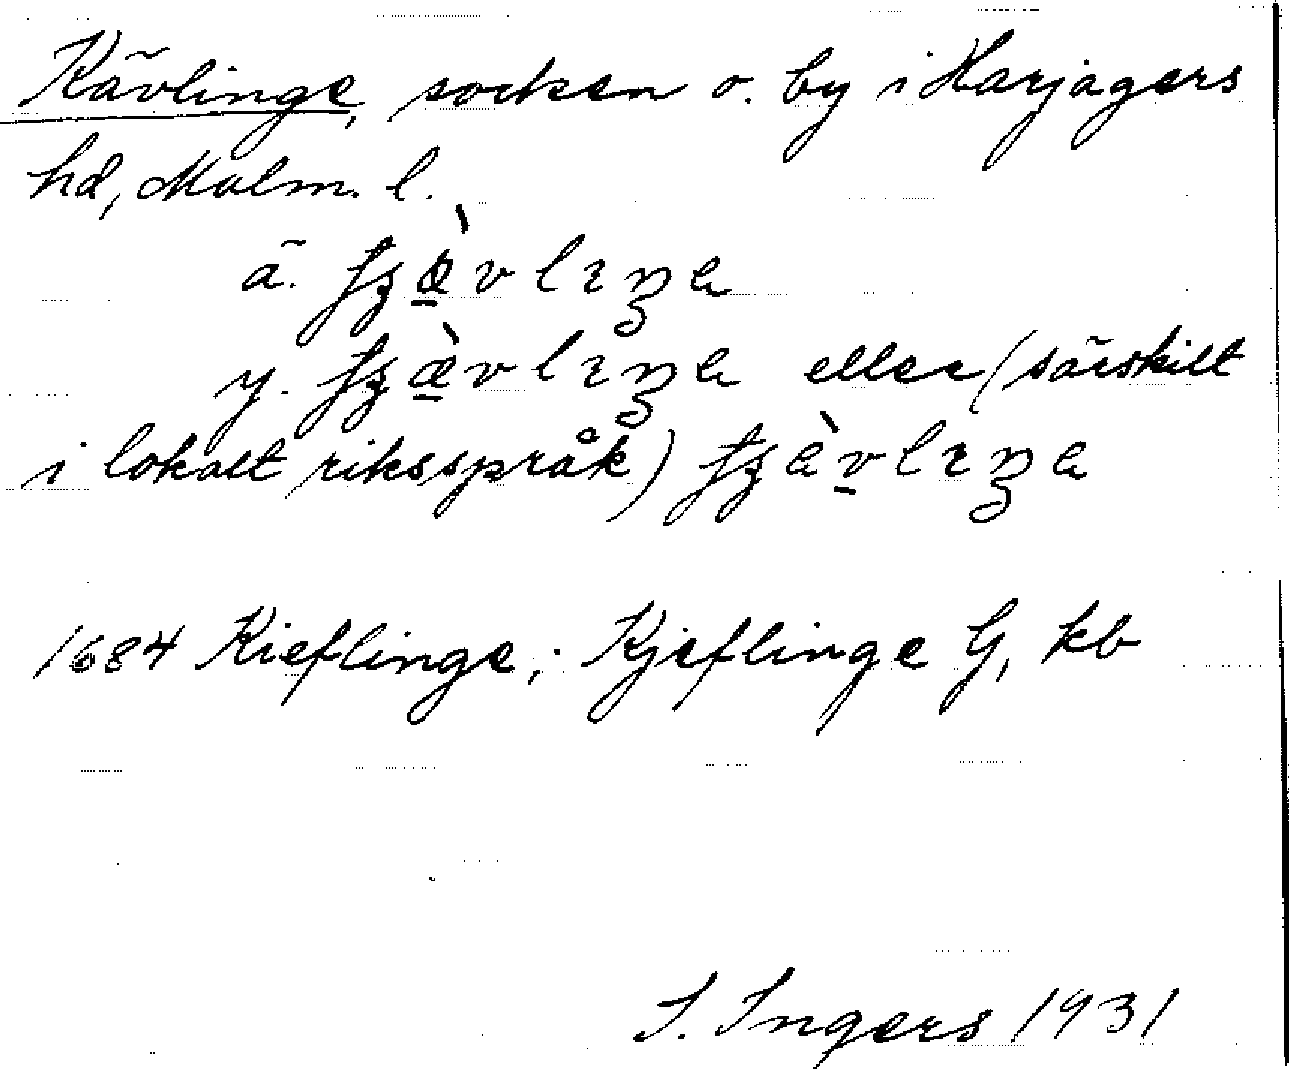 Kävlinge, socken o. by i Harjagers
hd, Malm. l.
ä.
y. eller (särskilt
i lokalt riksspråk)
1684 Kieflinge; Kjeflinge G, kb
I. Ingers 1931